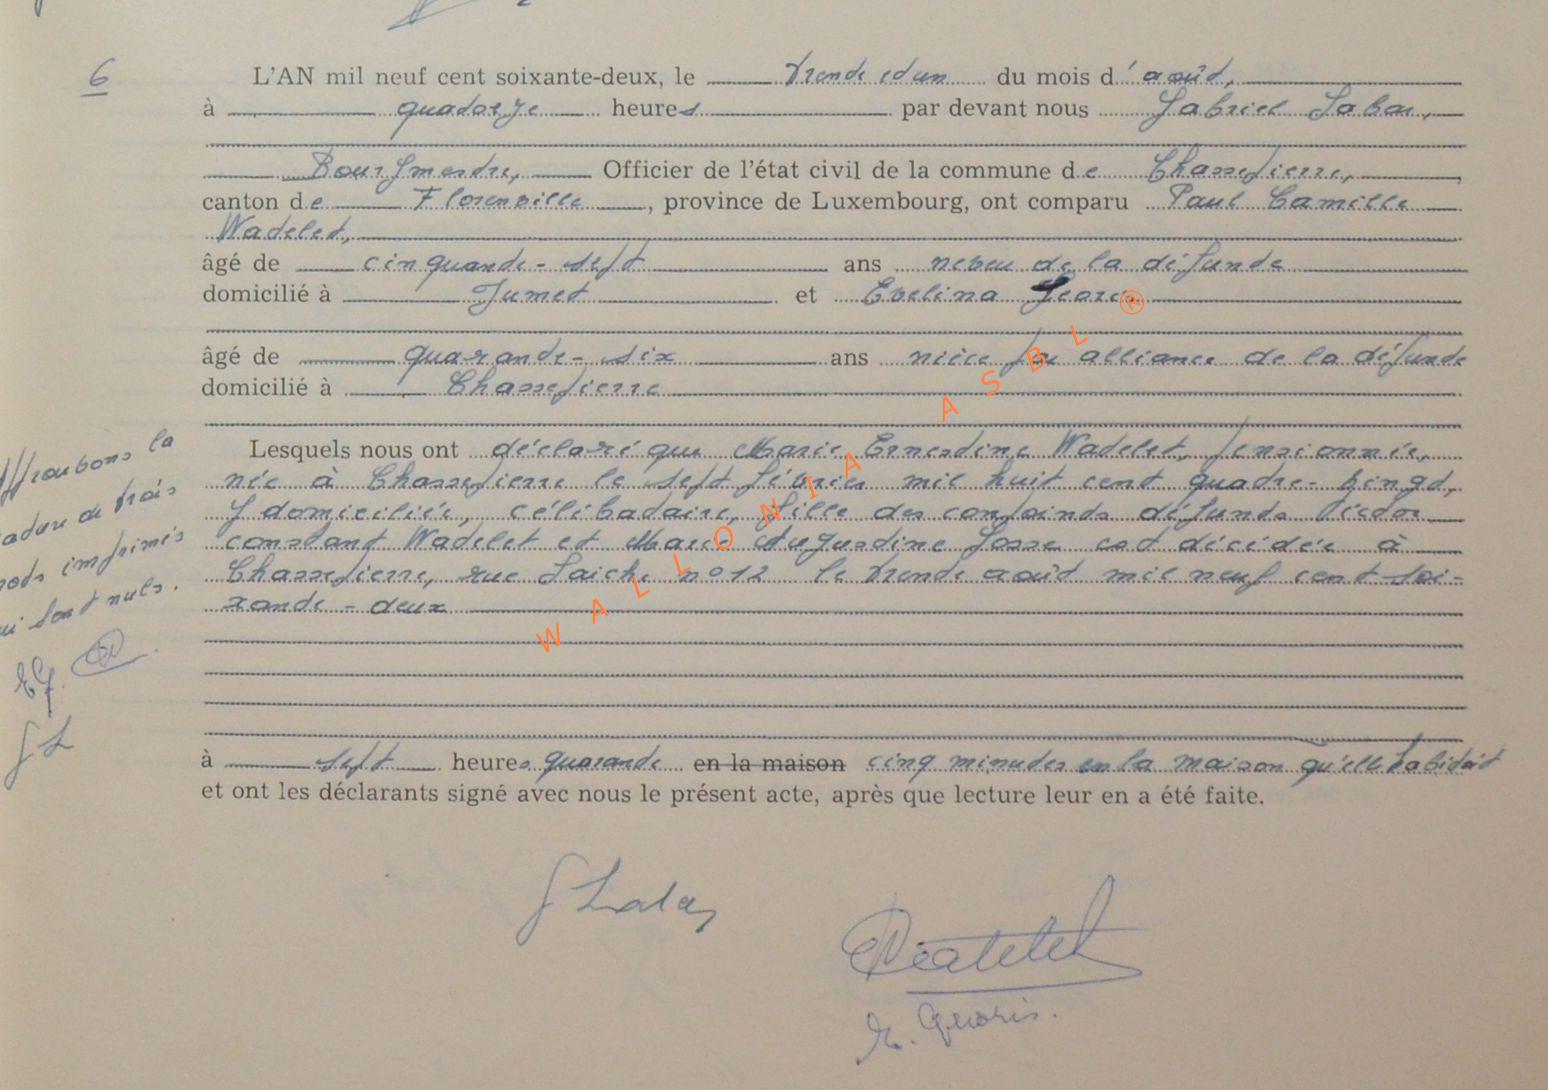 6
L'AN mil neuf cent soixante-deux, le trente et un du mois d'août,
à quatorze heures par devant nous Gabriel Labar,
Bourgmestre, Officier de l'état civil de la commune de Chassepierre,
canton de Florenville, province de Luxembourg, ont comparu Paul Camille
Wadelet,
âgé de cinquante-sept ans neveu de la défunte
domicilié à Jumet et Evelina
âgé de quarante-six ans nièce par alliance de la défunte
domicilié à Chassepierre
Lesquels nous ont déclaré que Marie Ernestine Wadelet, pensionnée,
née à Chassepierre le sept février mil huit cent quatre-vingt,
y domiciliée, célibataire, fille des conjoints défunts Victor
constant Wadelet et Marie Augustine Josse est décédée à
Chassepierre, rue Laiche n°12 le trente août mil neuf cent soi-
xante-deux
à sept heures quarante en la maison cinq minutes en la maison qu'elle habitait
et ont les déclarants signé avec nous le présent acte, après que lecture leur en a été faite.
Approuvons la
rature de trois
mots imprimés
qui sont nuls.
EG.
GL
Wadelet
E. Georis.
WALLONIA ASBL ®